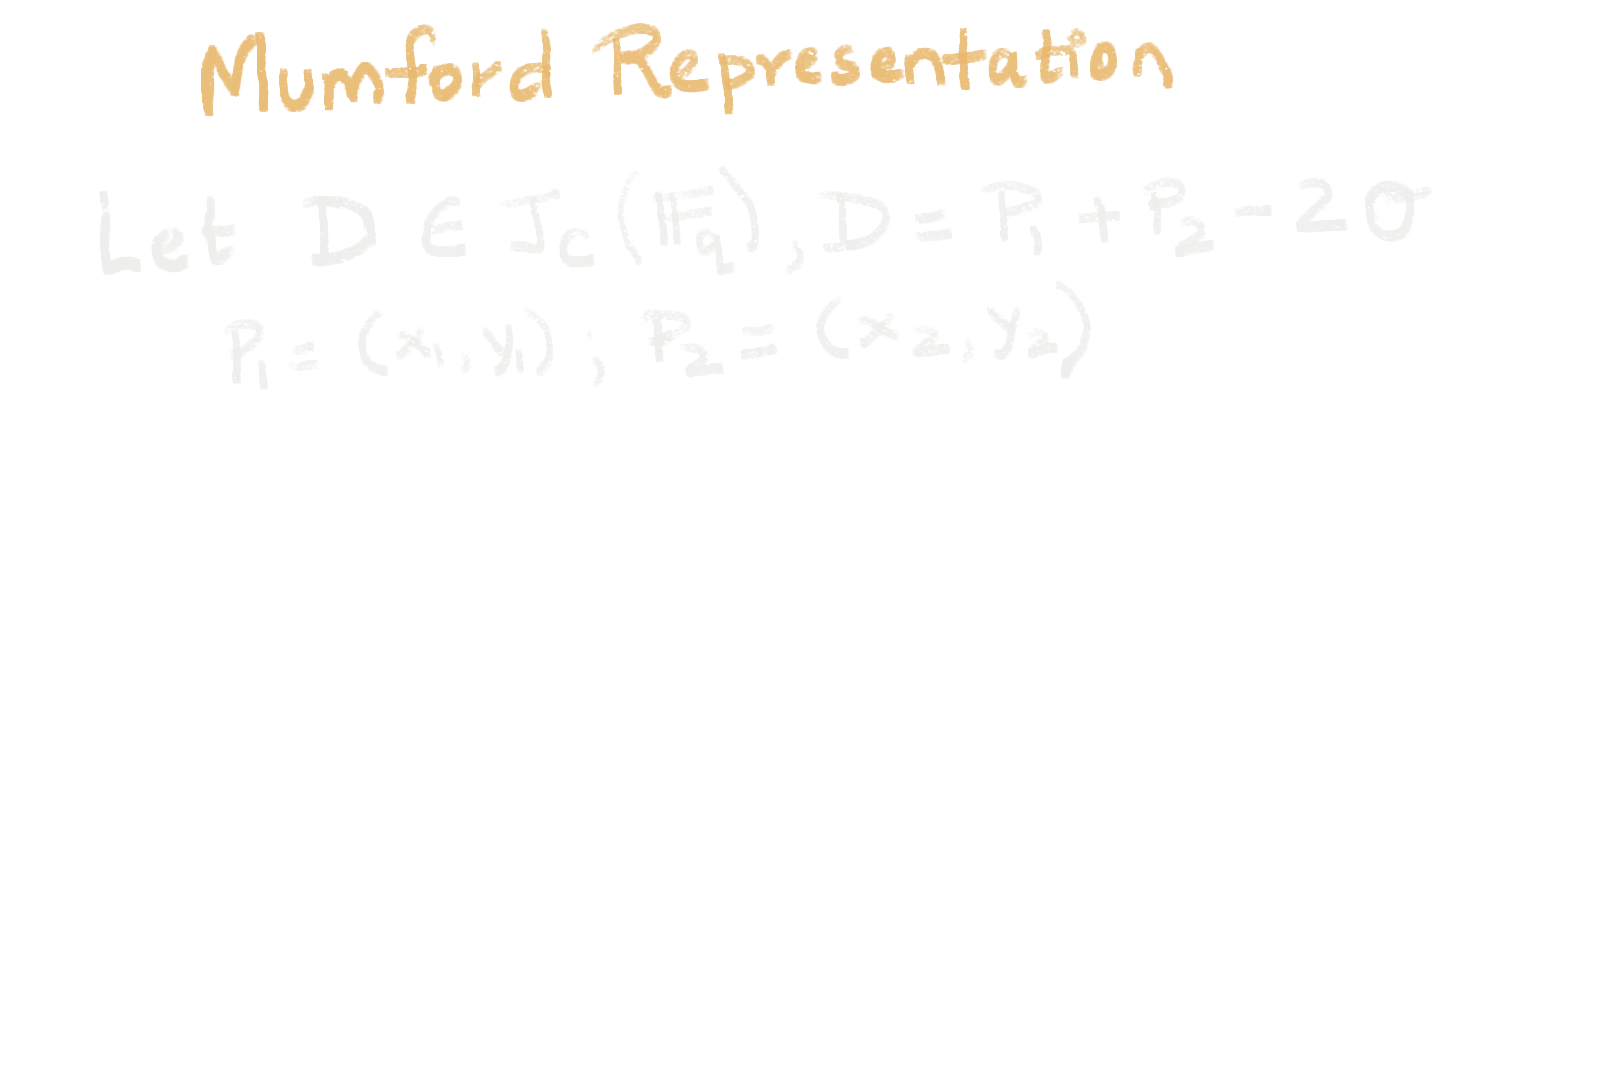 Mumford Representation
Let D ∈ J_C(𝔽_q), D = P_1 + P_2 - 2O
P_1 = (x_1, y_1); P_2 = (x_2, y_2)